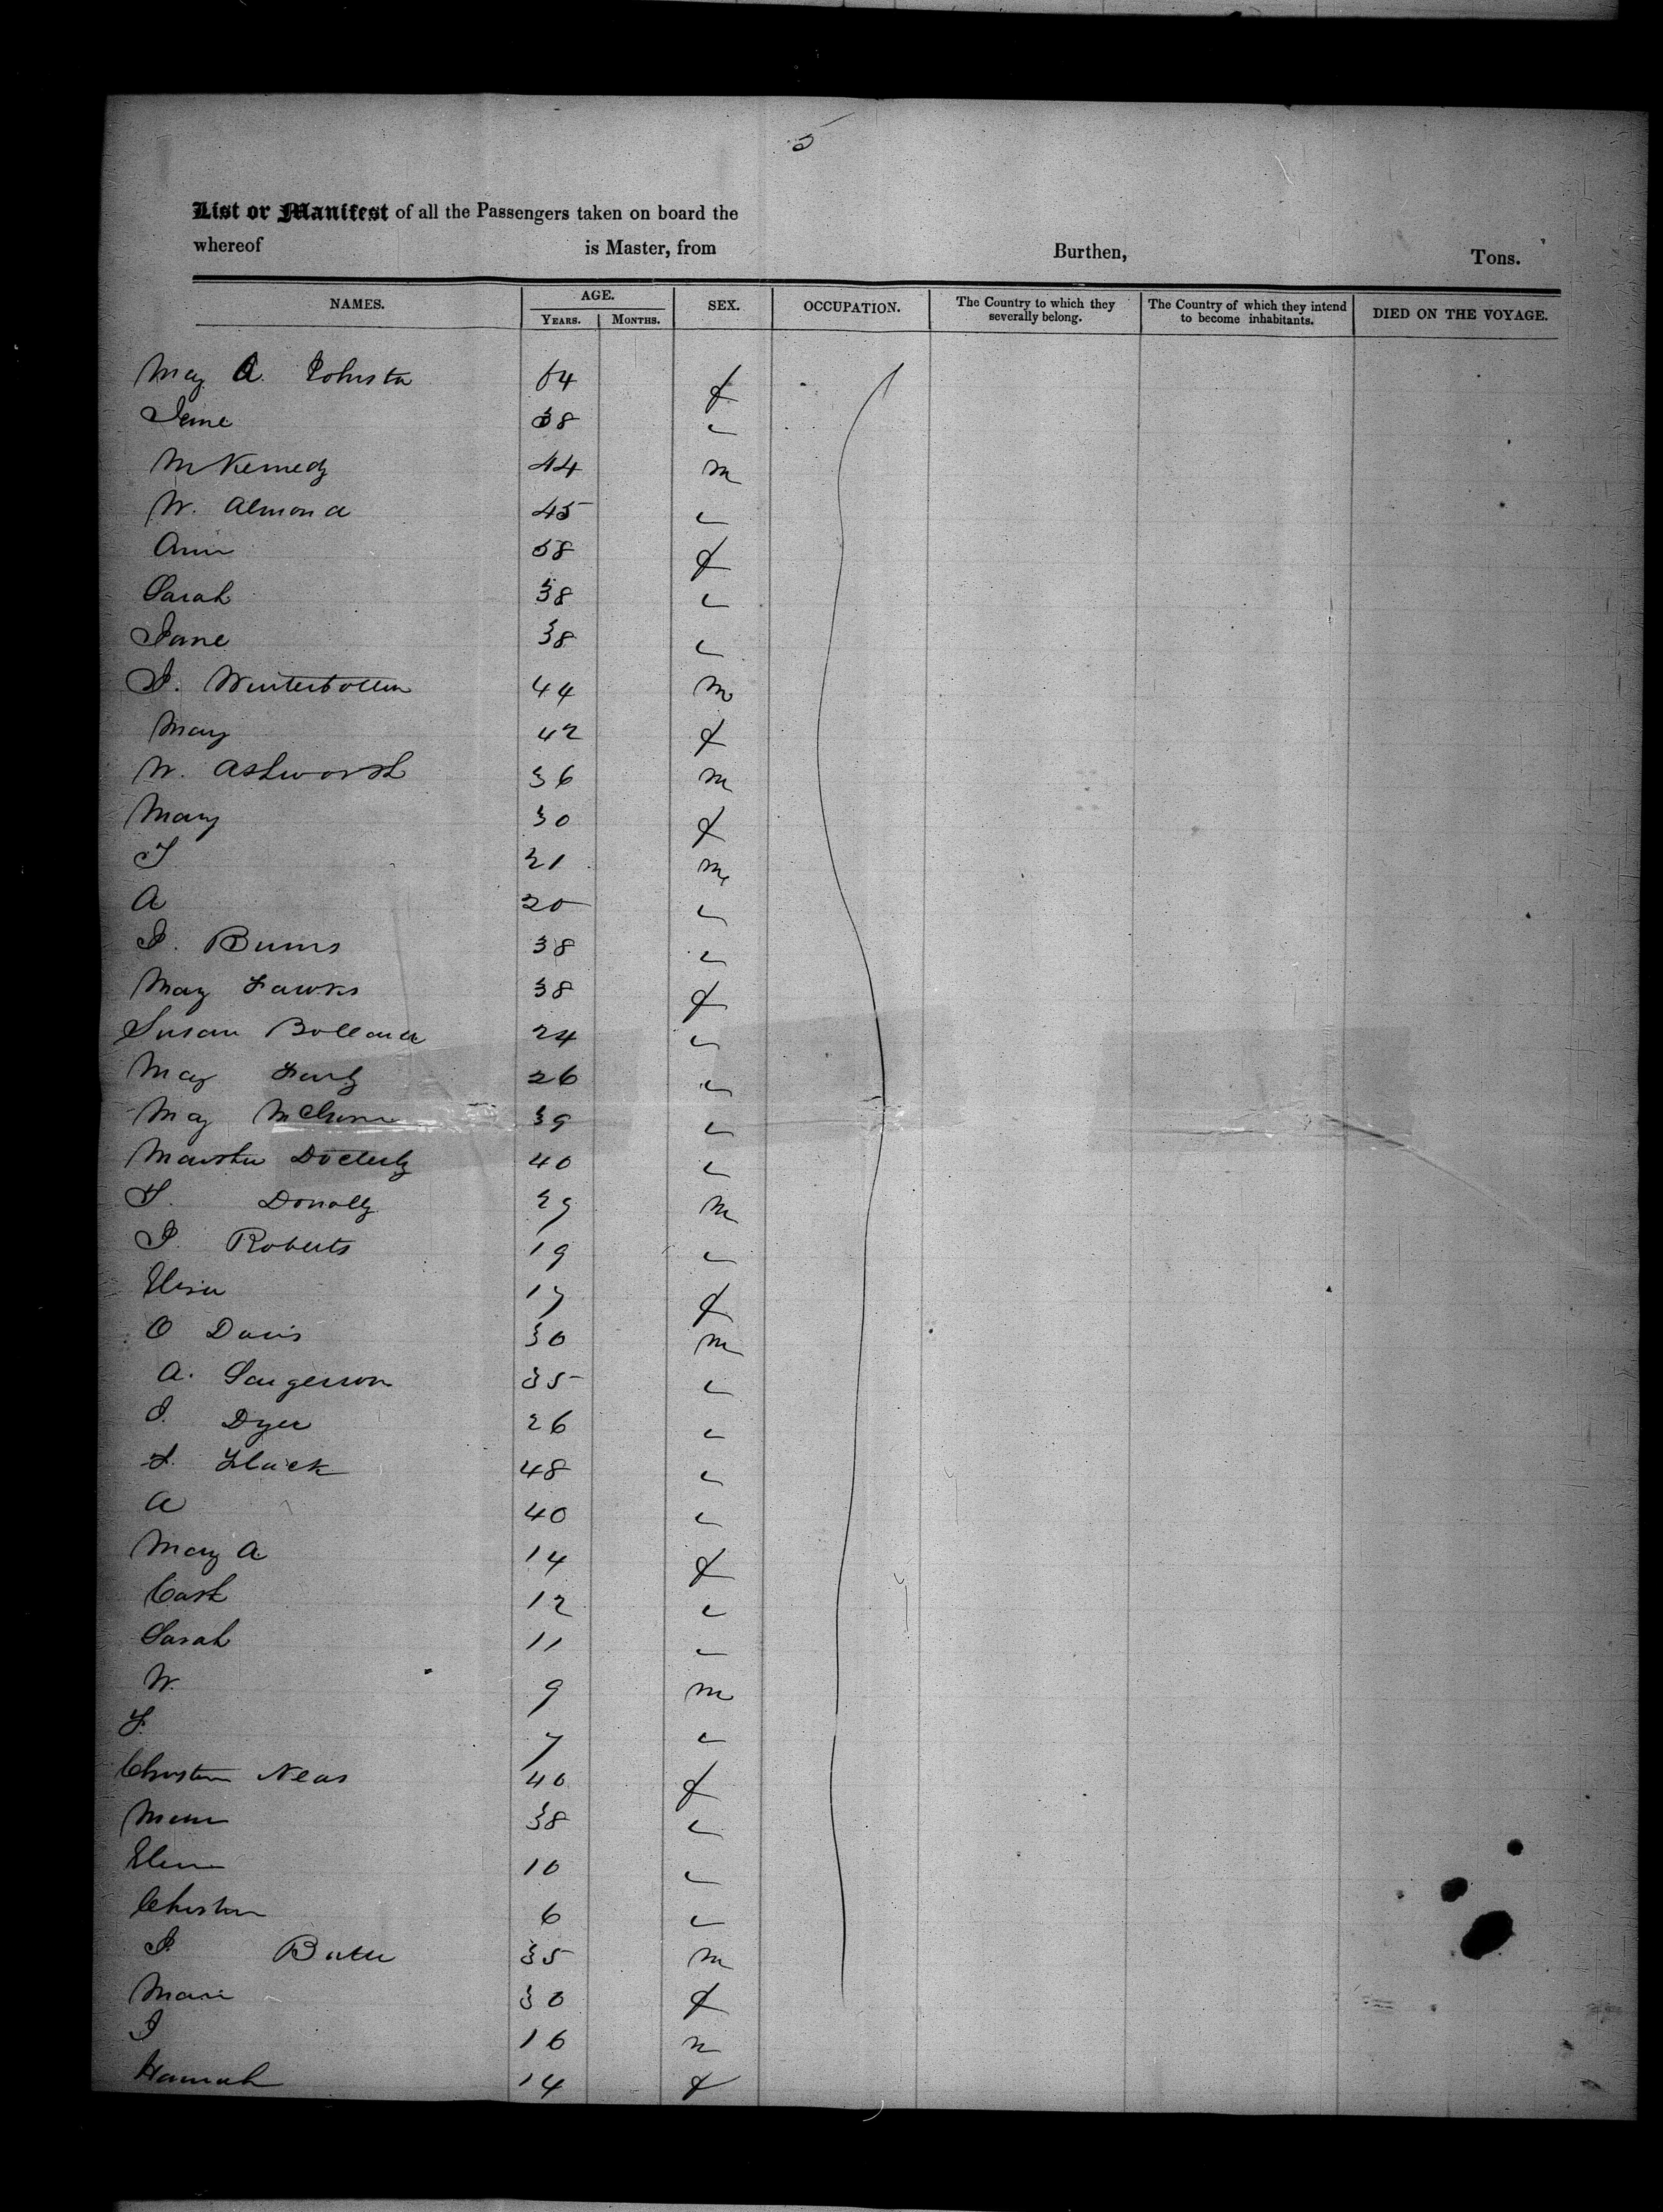 5
List or Manifest of all the Passengers taken on board the
whereof is Master, from Burthen, Tons.
NAMES. AGE. SEX. OCCUPATION. The Country to which they severally belong. The Country of which they intend to become inhabitants. DIED ON THE VOYAGE.
YEARS. MONTHS.
Mary A. Johnston 64 f
Jane 38 "
M Kennedy 44 m
W. Almond 45 "
Ann 38 f
Sarah 38 "
Jane 38 "
J. Winterbottom 44 m
Mary 42 f
W. Ashworth 36 m
Mary 30 f
T 21 m
A 20 "
J. Burns 38 "
Mary Fawks 38 f
Susan Bolland 24 "
Mary 26 "
Mary 39 "
Docherty 40 "
T. Donolly 29 m
J. Roberts 19 "
Eliza 17 f
O Davis 30 m
A. 35 "
J. Dyer 26 "
F. Fluck 48 "
A 40 "
Mary A 14 f
Cath 12 "
Sarah 11 "
W. 9 m
F. 7 "
Neas 40 f
38 "
10 "
6 "
J. 35 m
30 f
J 16 m
Hannah 14 f